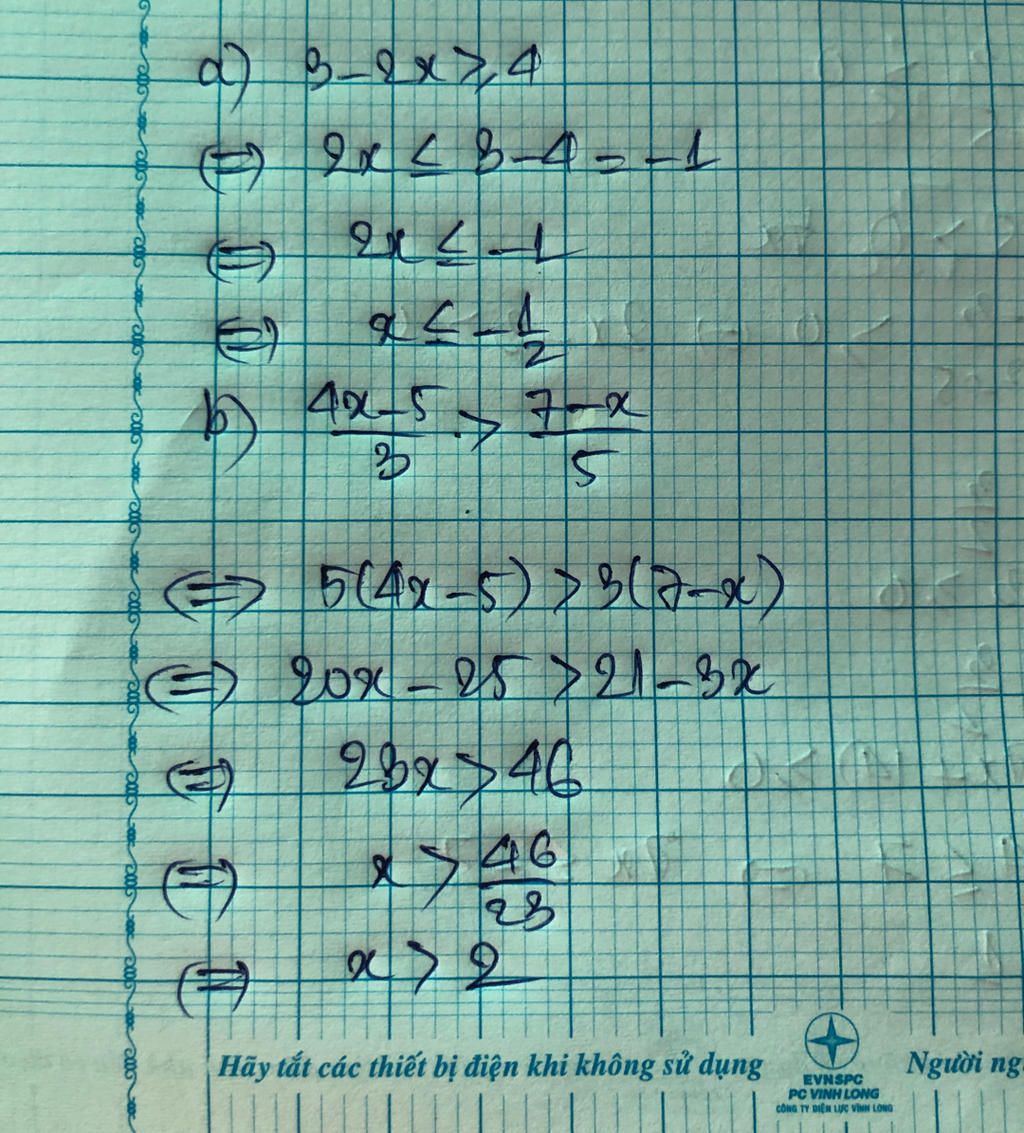 a) 3-2x ≥ 4
⇔ 2x ≤ 3-4 = -1
⇔ 2x ≤ -1
⇔ x ≤ -1/2
b) (4x-5)/3 > (7-x)/5
⇔ 5(4x-5) > 3(7-x)
⇔ 20x - 25 > 21 - 3x
⇔ 23x > 46
⇔ x > 46/23
⇔ x > 2
Hãy tắt các thiết bị điện khi không sử dụng
EVNSPC
PC VINH LONG
CÔNG TY ĐIỆN LỰC VĨNH LONG
Người ng